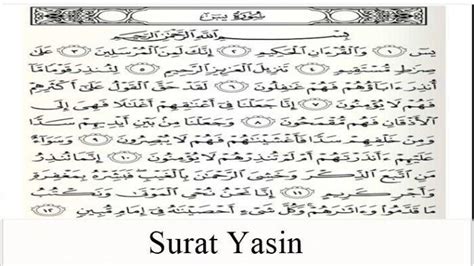 سورة يس
بسم الله الرحمن الرحيم
يس ١ والقرءان الحكيم ٢ إنك لمن المرسلين ٣ على
صراط مستقيم ٤ تنزيل العزيز الرحيم ٥ لتنذر قوما ما
أنذر ءاباؤهم فهم غافلون ٦ لقد حق القول على أكثرهم
فهم لا يؤمنون ٧ إنا جعلنا في أعناقهم أغلالا فهي إلى
الأذقان فهم مقمحون ٨ وجعلنا من بين أيديهم سدا
ومن خلفهم سدا فأغشيناهم فهم لا يبصرون ٩ وسواء
عليهم ءأنذرتهم أم لم تنذرهم لا يؤمنون ١٠ إنما تنذر
من اتبع الذكر وخشي الرحمن بالغيب فبشره بمغفرة
وأجر كريم ١١ إنا نحن نحي الموتى ونكتب
ما قدموا وءاثارهم وكل شيء أحصيناه في إمام مبين ١٢
Surat Yasin